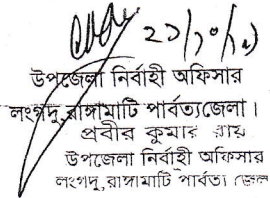 ২১/১০/২১
উপজেলা নির্বাহী অফিসার
লংগদু, রাঙ্গামাটি পার্বত্যজেলা।
প্রবীর কুমার রায়
উপজেলা নির্বাহী অফিসার
লংগদু, রাঙ্গামাটি পার্বত্য জেলা